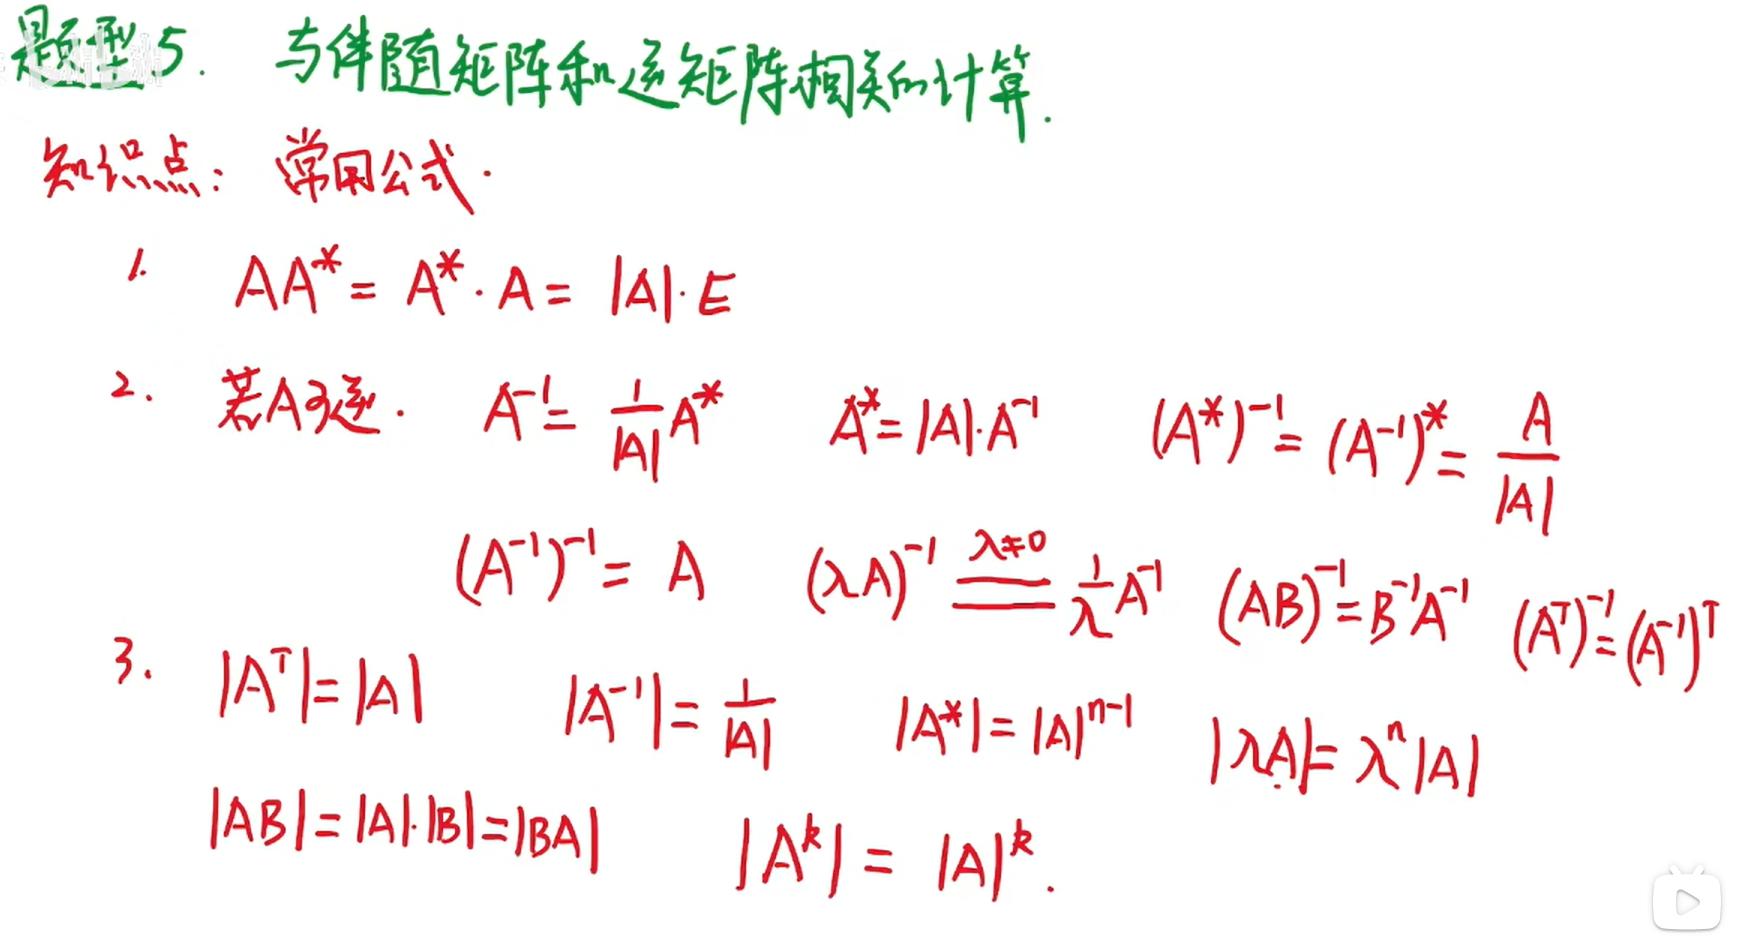 题型5. 与伴随矩阵和逆矩阵相关的计算.
知识点: 常用公式.
1. AA* = A*·A = |A|·E
2. 若A可逆. A⁻¹ = 1/|A| A* A* = |A|·A⁻¹ (A*)⁻¹ = (A⁻¹)* = A/|A|
(A⁻¹)⁻¹ = A (λA)⁻¹ =(λ≠0)= 1/λ A⁻¹ (AB)⁻¹ = B⁻¹A⁻¹ (Aᵀ)⁻¹ = (A⁻¹)ᵀ
3. |Aᵀ| = |A| |A⁻¹| = 1/|A| |A*| = |A|ⁿ⁻¹ |λA| = λⁿ|A|
|AB| = |A|·|B| = |BA| |Aᵏ| = |A|ᵏ.